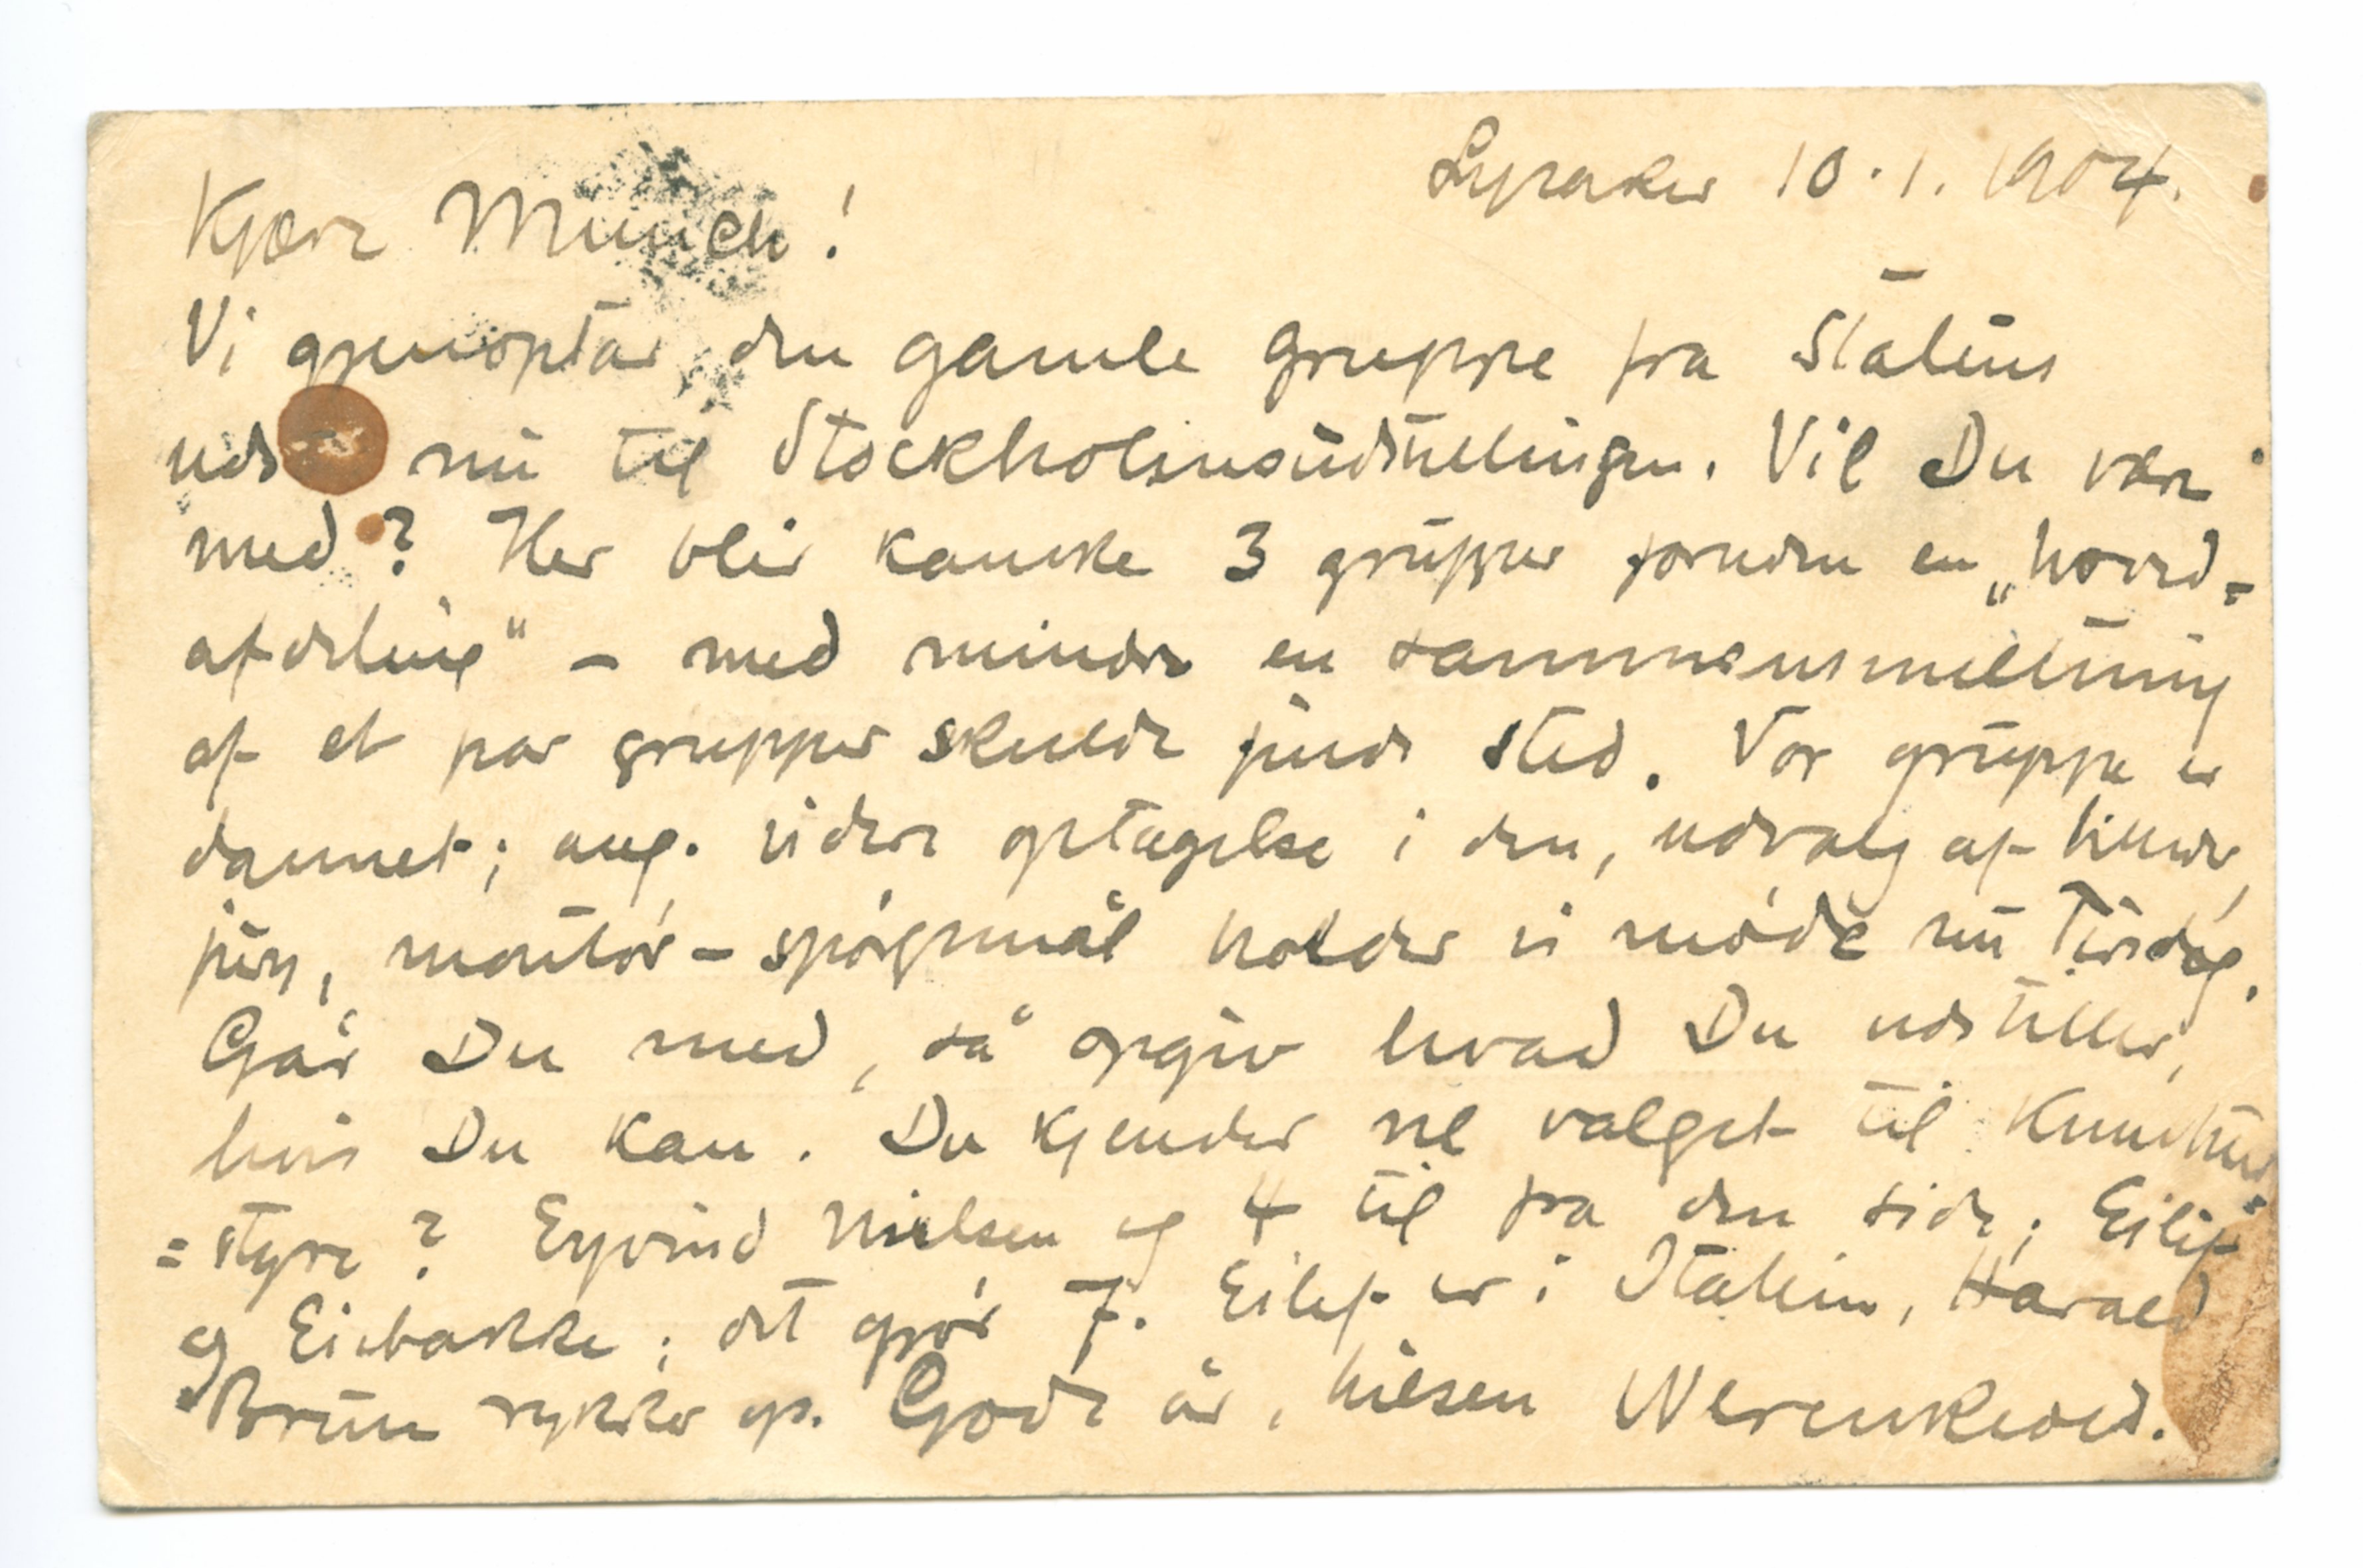 Lysaker 10.1.1904.
Kjære Munch!
Vi gjenoptar den gamle gruppe fra Statens
udst nu til Stockholmsudstillingen. Vil Du være
med? Her blir kanske 3 grupper foruden en „hoved=
afdeling" – med mindre en sammensmeltning
af et par grupper skulde finde sted. Vor gruppe er
dannet; ang. videre optagelse i den, udvalg af billeder,
jury, montør-spørgsmål holder vi møde nu Tirsdag.
Går Du med, så opgiv hvad Du udstiller,
hvis Du kan. Du kjender vel valget til Kunstner=
=styre? Eyvind Nielsen og 4 til fra den side; Eilif
og Eiebakke; det gjør 7. Eilif er i Italien, Harald
Brun rykker op. Godt år, hilsen Werenskiold.